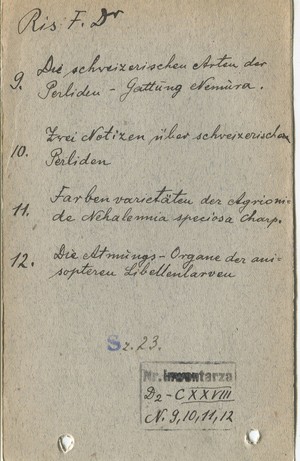 Ris: F. Dr
9. Die schweizerischen Arten der
Perliden - Gattung Nemura.
10. Zwei Notizen über schweizerischen
Perliden
11. Farben varietäten der Agrioni-
de Nehalennia speciosa Charp.
12. Die Atmungs - Organe der ani-
sopteren Libellenlarven
Sz. 23.
Nr. inwentarza
D2 - CXXVIII
N. 9, 10, 11, 12